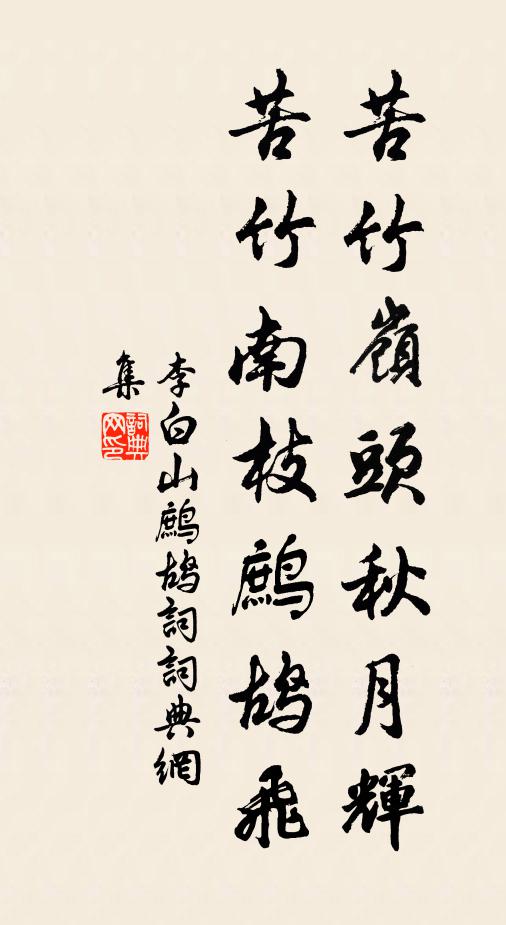 苦竹嶺頭秋月輝
苦竹南枝鷓鴣飛
李白山鷓鴣詞詞典網
集
詞典網印